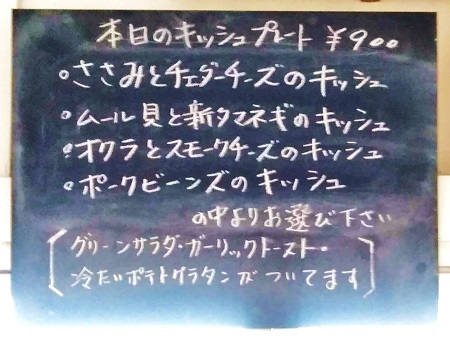 本日のキッシュプレート ¥900
・ささみとチェダーチーズのキッシュ
・ムール貝と新タマネギのキッシュ
・オクラとスモークチーズのキッシュ
・ポークビーンズのキッシュ
の中よりお選び下さい
[グリーンサラダ・ガーリックトースト・
冷たいポテトグラタンがついてます]